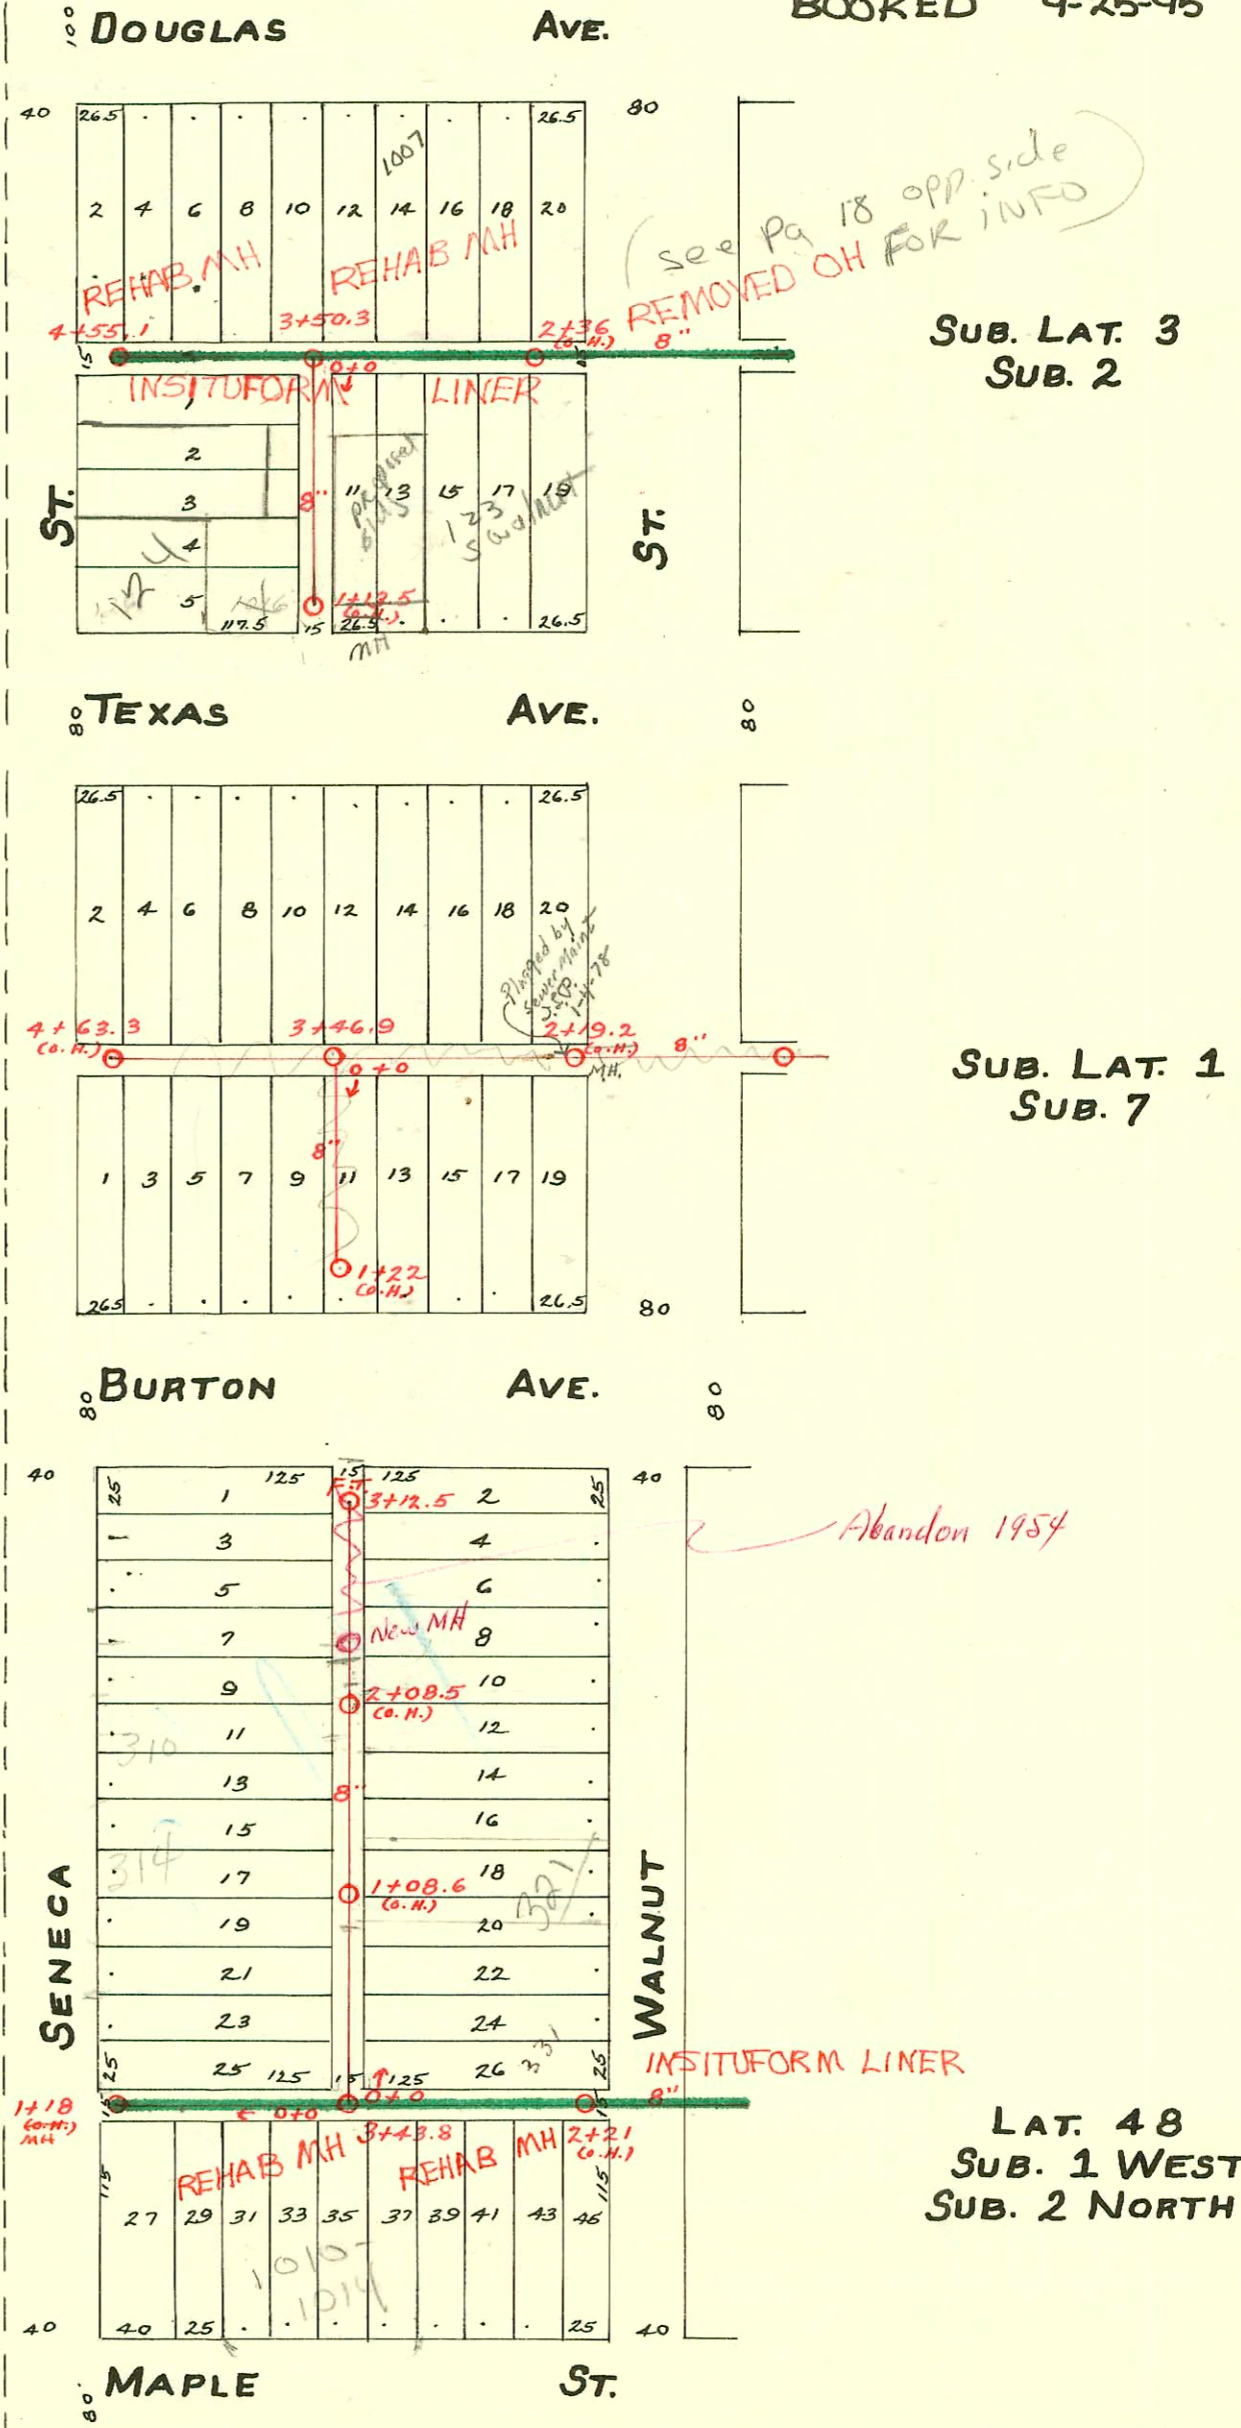 BOOKED 4-25-95
100 DOUGLAS AVE.
40 26.5 26.5 80
1007
2 4 6 8 10 12 14 16 18 20
(see pg 18 opp. side
FOR INFO)
REHAB MH REHAB MH REMOVED OH
4+55.1 3+50.3 2+36 (O.H.) 8"
SUB. LAT. 3
SUB. 2
15 0+0 15
INSITUFORM LINER
1
2
3
4
5
ST. 8" 11 13 15 17 19 ST.
proposed
bldg
123
S walnut
124
1+12.5
(O.H.)
117.5 15 26.5 26.5
MH
80 TEXAS AVE. 80
26.5 26.5
2 4 6 8 10 12 14 16 18 20
Plugged by
Sewer Maint
1-4-78
4+63.3 (O.H.) 3+46.9 2+19.2 (O.H.) 8"
MH.
0+0
SUB. LAT. 1
SUB. 7
8"
1 3 5 7 9 11 13 15 17 19
1+22
(O.H.)
265 26.5 80
80 BURTON AVE. 80
40 125 15 125 40
25 1 F.T. 3+12.5 2 25
3 4
Abandon 1954
5 6
7 New MH 8
9 2+08.5 10
(O.H.)
310 11 12
13 8" 14
15 16
314 17 1+08.6 18
(O.H.) 321
19 20
21 22
23 24
25 25 125 15 125 26 331 25
SENECA WALNUT
INSITUFORM LINER
1+18 15 0+0 15 8"
(O.H.)
MH
← 0+0
3+43.8 2+21
(O.H.)
REHAB MH REHAB MH
LAT. 48
SUB. 1 WEST
SUB. 2 NORTH
115 115
27 29 31 33 35 37 39 41 43 45
1010-
1014
40 40 25 25 40
80 MAPLE ST.